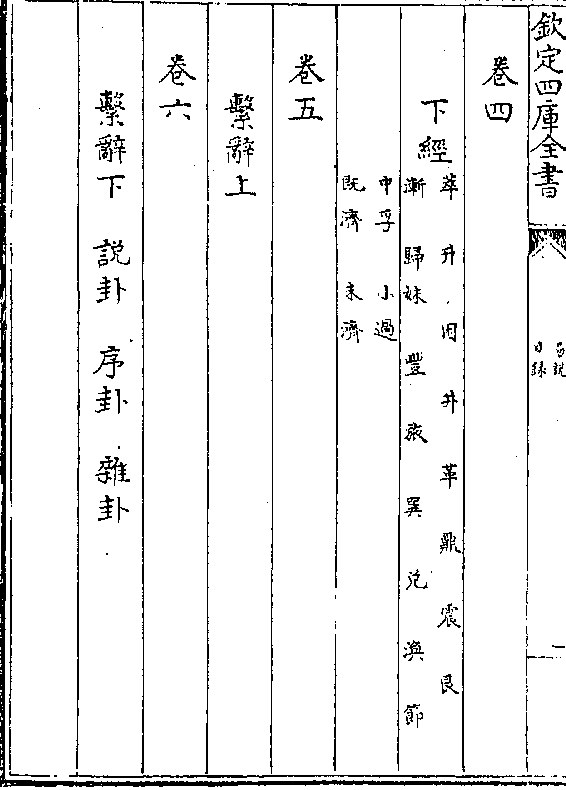 欽定四庫全書
易說
目錄
一
卷四
下經
萃 升 困 井 革 鼎 震 艮
漸 歸妹 豐 旅 巽 兌 渙 節
中孚 小過
既濟 未濟
卷五
繫辭上
卷六
繫辭下 說卦 序卦 雜卦